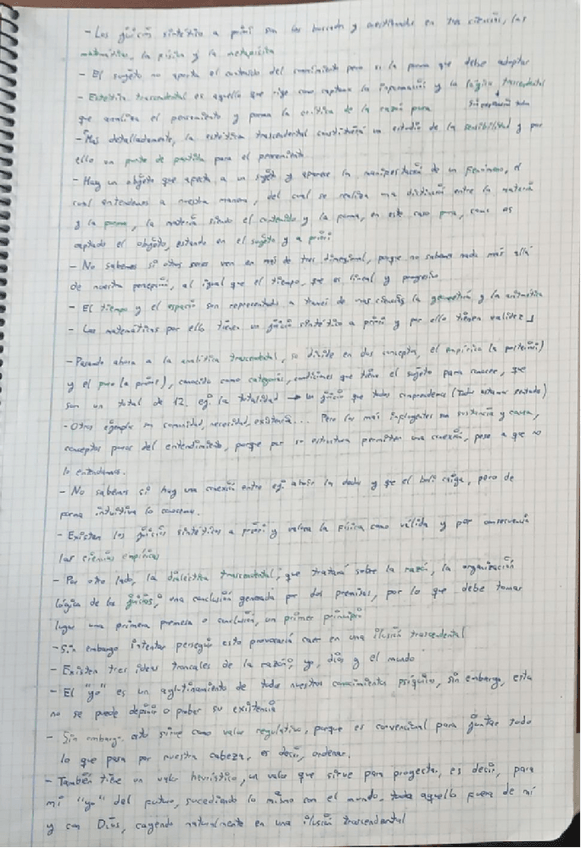 - Los juicios sintético a priori son los buscados y constituidos en tres ciencias, las
matemáticas, la física y la metafísica
- El sujeto no aporta el contenido del conocimiento pero si la forma que debe adoptar
- Estética trascendental es aquello que rige como captamos la información y la lógica trascendental
que analiza el pensamiento y forma la crítica de la razón pura
- Más detalladamente, la estética trascendental constituirá un estudio de la sensibilidad y por
ello un punto de partida para el
- Hay un objeto que afecta a un sujeto y aparece la manifestación de un fenómeno, el
cual entendemos a nuestra manera, del cual se realiza una distinción entre la materia
y la forma, la materia siendo el contenido y la forma, en este caso pura, como es
captado el objeto, estando en el sujeto y a priori
- No sabemos si otros seres ven en más de tres dimensiones, porque no sabemos nada más allá
de nuestra percepción, al igual que el tiempo, que es lineal y progresivo
- El tiempo y el espacio son representado a través de dos ciencias, la geometría y la aritmética
- Las matemáticas por ello tienen un juicio sintético a priori y por ello tienen validez
- Pasando ahora a la analítica trascendental, se divide en dos conceptos, el empírico (a posteriori)
y el puro (a priori), conocido como categorías, condiciones que tiene el sujeto para conocer, que
son un total de 12. ej: la totalidad → un juicio que todos comprendemos (Todos estamos
- Otros ejemplo son comunidad, necesidad, existencia... Pero los más influyentes son sustancia y causa,
conceptos puros del entendimiento, porque por su estructura permiten una conexión, pese a que no
lo entendamos.
- No sabemos si hay una conexión entre ej: abrir la mano y que el boli caiga, pero de
forma intuitiva lo conocemos.
- Existen los juicios sintéticos a priori y valora la física como válida y por consecuencia
las ciencias empíricas
- Por otro lado, la dialéctica trascendental, que tratará sobre la razón, la organización
lógica de los juicios, una conclusión generada por dos premisas, por lo que debe tomar
lugar una primera premisa o conclusión, un primer principio
- Sin embargo intentar perseguir esto provocaría caer en una ilusión trascendental
- Existen tres ideas troncales de la razón: yo, dios y el mundo
- El "yo" es un aglutinamiento de todo nuestros conocimientos psíquicos, sin embargo, esta
no se puede definir o probar su existencia
- Sin embargo esto sirve como valor regulativo, porque es convencional para juntar todo
lo que pasa por nuestra cabeza, es decir, ordenar.
- También tiene un valor heurístico, un valor que sirve para proyectar, es decir, para
mi "yo" del futuro, sucediendo lo mismo con el mundo, todo aquello fuera de mí
y con Dios, cayendo naturalmente en una ilusión trascendental